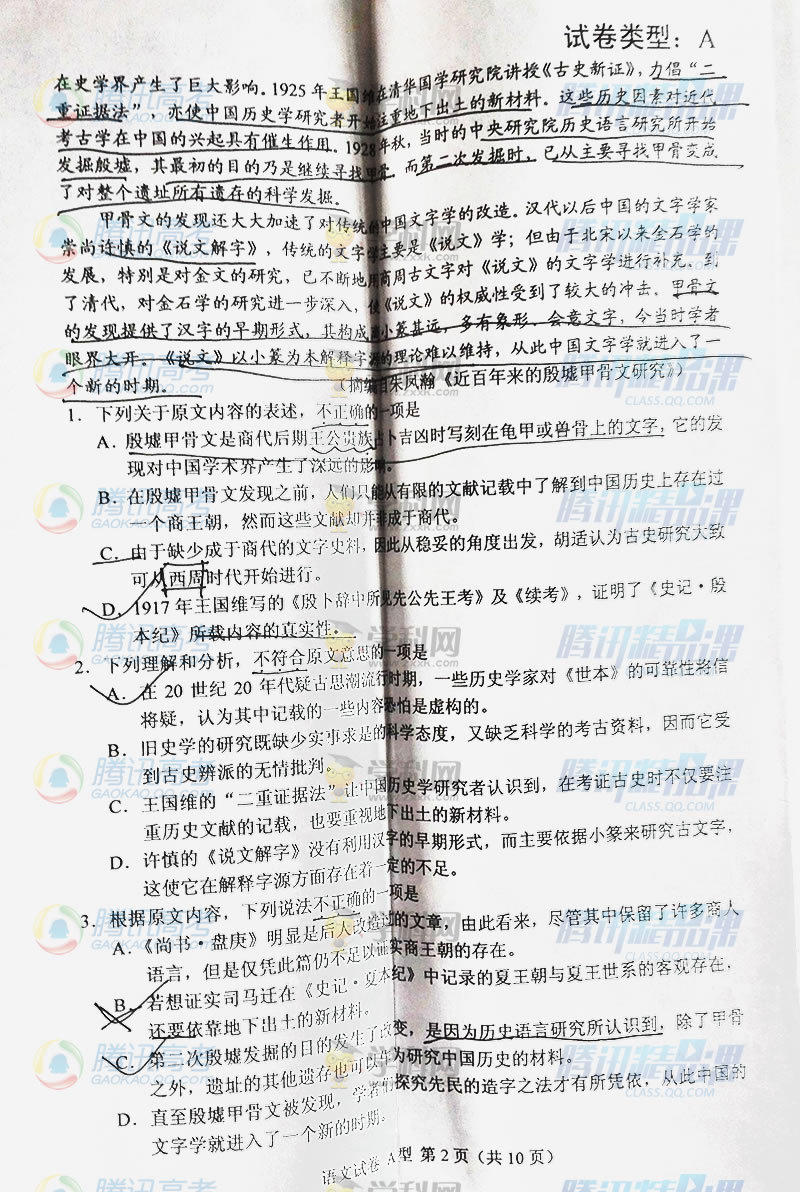 试卷类型：A
在史学界产生了巨大影响。1925年王国维在清华国学研究院讲授《古史新证》，力倡“二
重证据法”，亦使中国历史学研究者开始注重地下出土的新材料。这些历史因素对近代
考古学在中国的兴起具有催生作用。1928年秋，当时的中央研究院历史语言研究所开始
发掘殷墟，其最初的目的乃是继续寻找甲骨，而第二次发掘时，已从主要寻找甲骨变成
了对整个遗址所有遗存的科学发掘。
甲骨文的发现还大大加速了对传统的中国文字学的改造。汉代以后中国的文字学家
崇尚许慎的《说文解字》，传统的文字学主要是《说文》学；但由于北宋以来金石学的
发展，特别是对金文的研究，已不断地用商周古文字对《说文》的文字学进行补充。到
了清代，对金石学的研究进一步深入，使《说文》的权威性受到了较大的冲击。甲骨文
的发现提供了汉字的早期形式，其构成离小篆甚远，多有象形、会意文字，令当时学者
眼界大开。《说文》以小篆为本解释字源的理论难以维持，从此中国文字学就进入了一
个新的时期。（摘编自朱凤瀚《近百年来的殷墟甲骨文研究》）
1．下列关于原文内容的表述，不正确的一项是
A．殷墟甲骨文是商代后期王公贵族占卜吉凶时写刻在龟甲或兽骨上的文字，它的发
现对中国学术界产生了深远的影响。
B．在殷墟甲骨文发现之前，人们只能从有限的文献记载中了解到中国历史上存在过
一个商王朝，然而这些文献却并非成于商代。
C．由于缺少成于商代的文字史料，因此从稳妥的角度出发，胡适认为古史研究大致
可从西周时代开始进行。
D．1917年王国维写的《殷卜辞中所见先公先王考》及《续考》，证明了《史记·殷
本纪》所载内容的真实性。
2．下列理解和分析，不符合原文意思的一项是
A．在20世纪20年代疑古思潮流行时期，一些历史学家对《世本》的可靠性将信
将疑，认为其中记载的一些内容恐怕是虚构的。
B．旧史学的研究既缺少实事求是的科学态度，又缺乏科学的考古资料，因而它受
到古史辨派的无情批判。
C．王国维的“二重证据法”让中国历史学研究者认识到，在考证古史时不仅要注
重历史文献的记载，也要重视地下出土的新材料。
D．许慎的《说文解字》没有利用汉字的早期形式，而主要依据小篆来研究古文字，
这使它在解释字源方面存在着一定的不足。
3．根据原文内容，下列说法不正确的一项是
A．《尚书·盘庚》明显是后人改造过的文章，由此看来，尽管其中保留了许多商人
语言，但是仅凭此篇仍不足以证实商王朝的存在。
B．若想证实司马迁在《史记·夏本纪》中记录的夏王朝与夏王世系的客观存在，
还要依靠地下出土的新材料。
C．第二次殷墟发掘的目的发生了改变，是因为历史语言研究所认识到，除了甲骨
之外，遗址的其他遗存也可以作为研究中国历史的材料。
D．直至殷墟甲骨文被发现，学者们探究先民的造字之法才有所凭依，从此中国的
文字学就进入了一个新的时期。
语文试卷 A型 第2页（共10页）